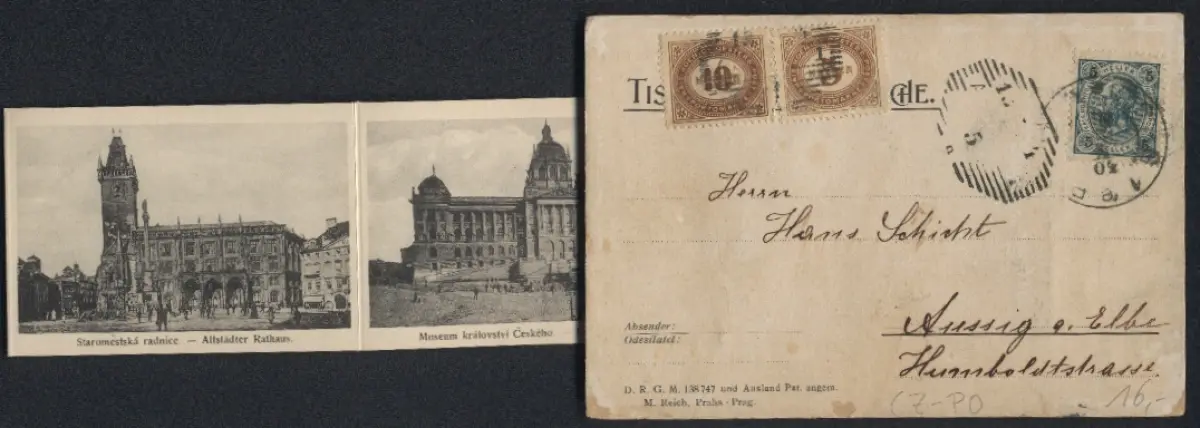 Staroměstská radnice — Altstädter Rathaus.
Museum království Českého.
TIS CHE.
10
5
Herrn
Hans Schicht
Aussig a. Elbe
Humboldtstrasse.
Absender:
Odesílatel:
D. R. G. M. 138747 und Ausland Pat. angem.
M. Reich, Praha-Prag.
CZ-PO
16,-